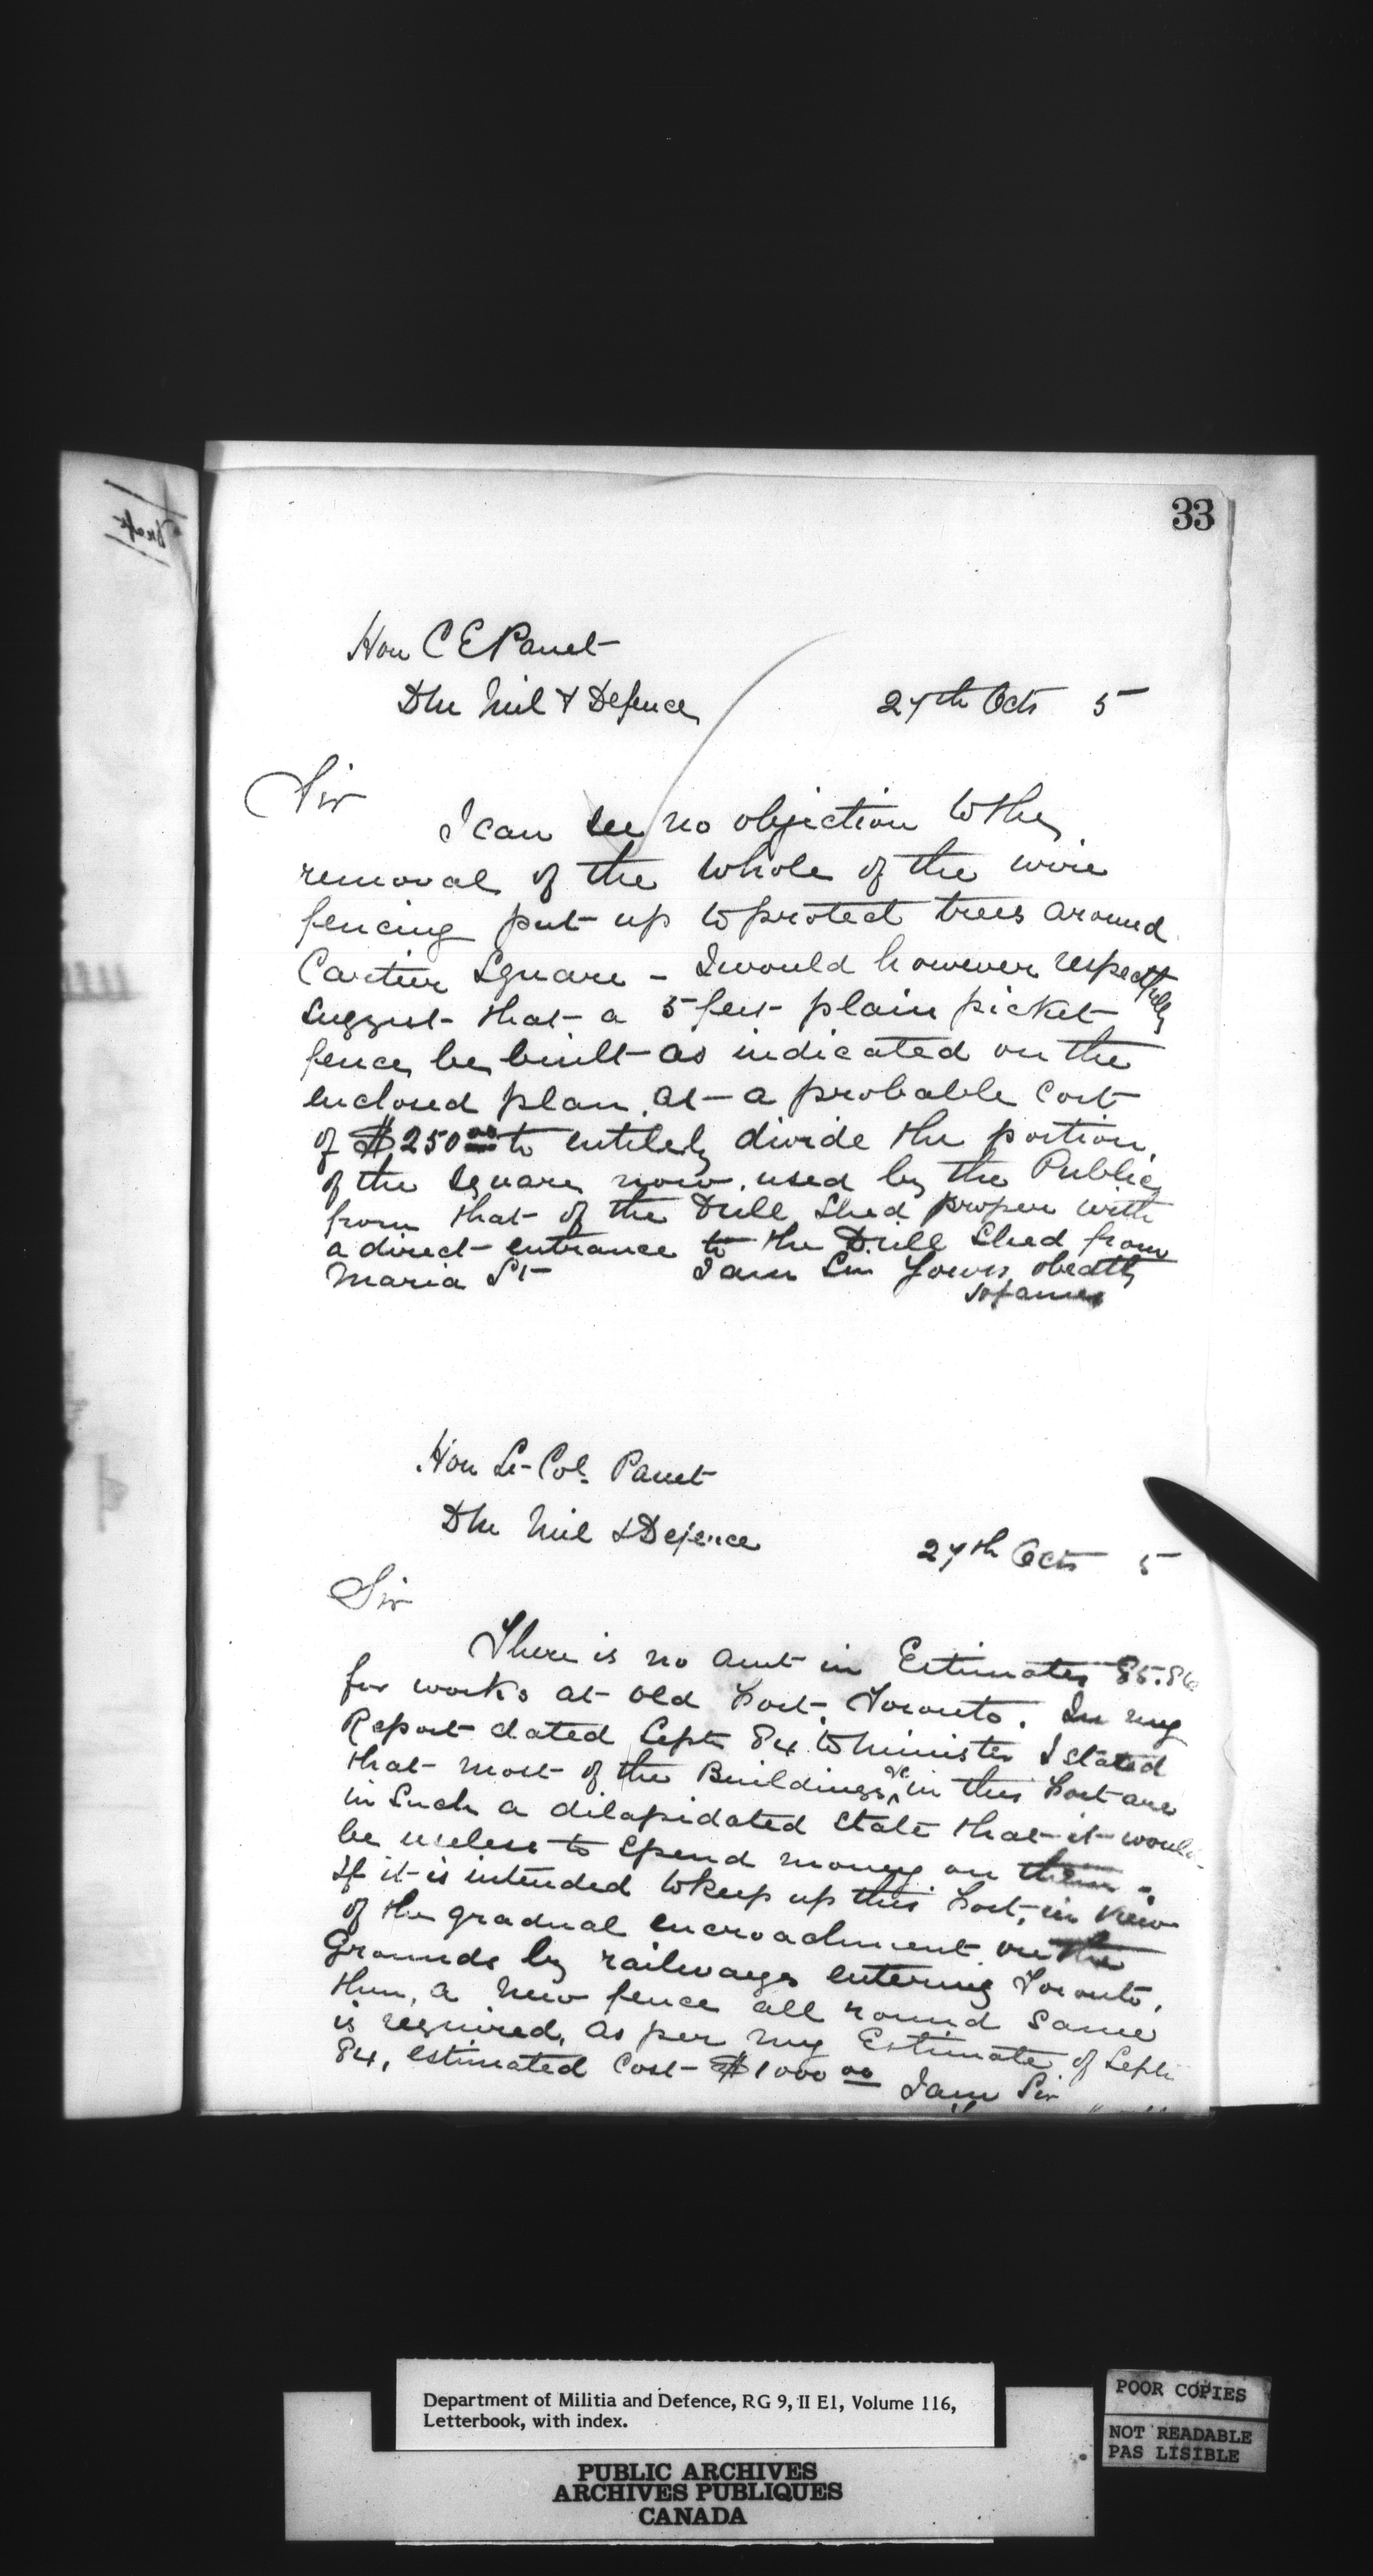 33
Hon C E Panet
DM Mil & Defence
27th Octr 5
Sir
I can see no objection to the
removal of the whole of the wire
fencing put up to protect trees around
Cartier Square - I would however respectfully
suggest that a 5 feet plain picket
fence be built as indicated on the
enclosed plan, at a probable cost
of $250.00 to entirely divide the portion
of the square now used by the Public
from that of the Drill Shed proper with
a direct entrance to the Drill Shed from
Maria St I am Sir Yours obedtly
Hon Lt Col. Panet
DM Mil & Defence
27th Octr 5
Sir
There is no amt in Estimates 85.86
for works at old Fort, Toronto. In my
Report dated Sept 84 to Minister I stated
that most of the Buildings &c in this Fort are
in such a dilapidated state that it would
be useless to spend money on them.
If it is intended to keep up this Fort, in view
of the gradual encroachment on the
Grounds by railways entering Toronto,
then, a new fence all round same
is required, as per my Estimate of Sept
84, estimated cost $1000 00 I am Sir
Department of Militia and Defence, RG 9, II E1, Volume 116,
Letterbook, with index.
PUBLIC ARCHIVES
ARCHIVES PUBLIQUES
CANADA
POOR COPIES
NOT READABLE
PAS LISIBLE